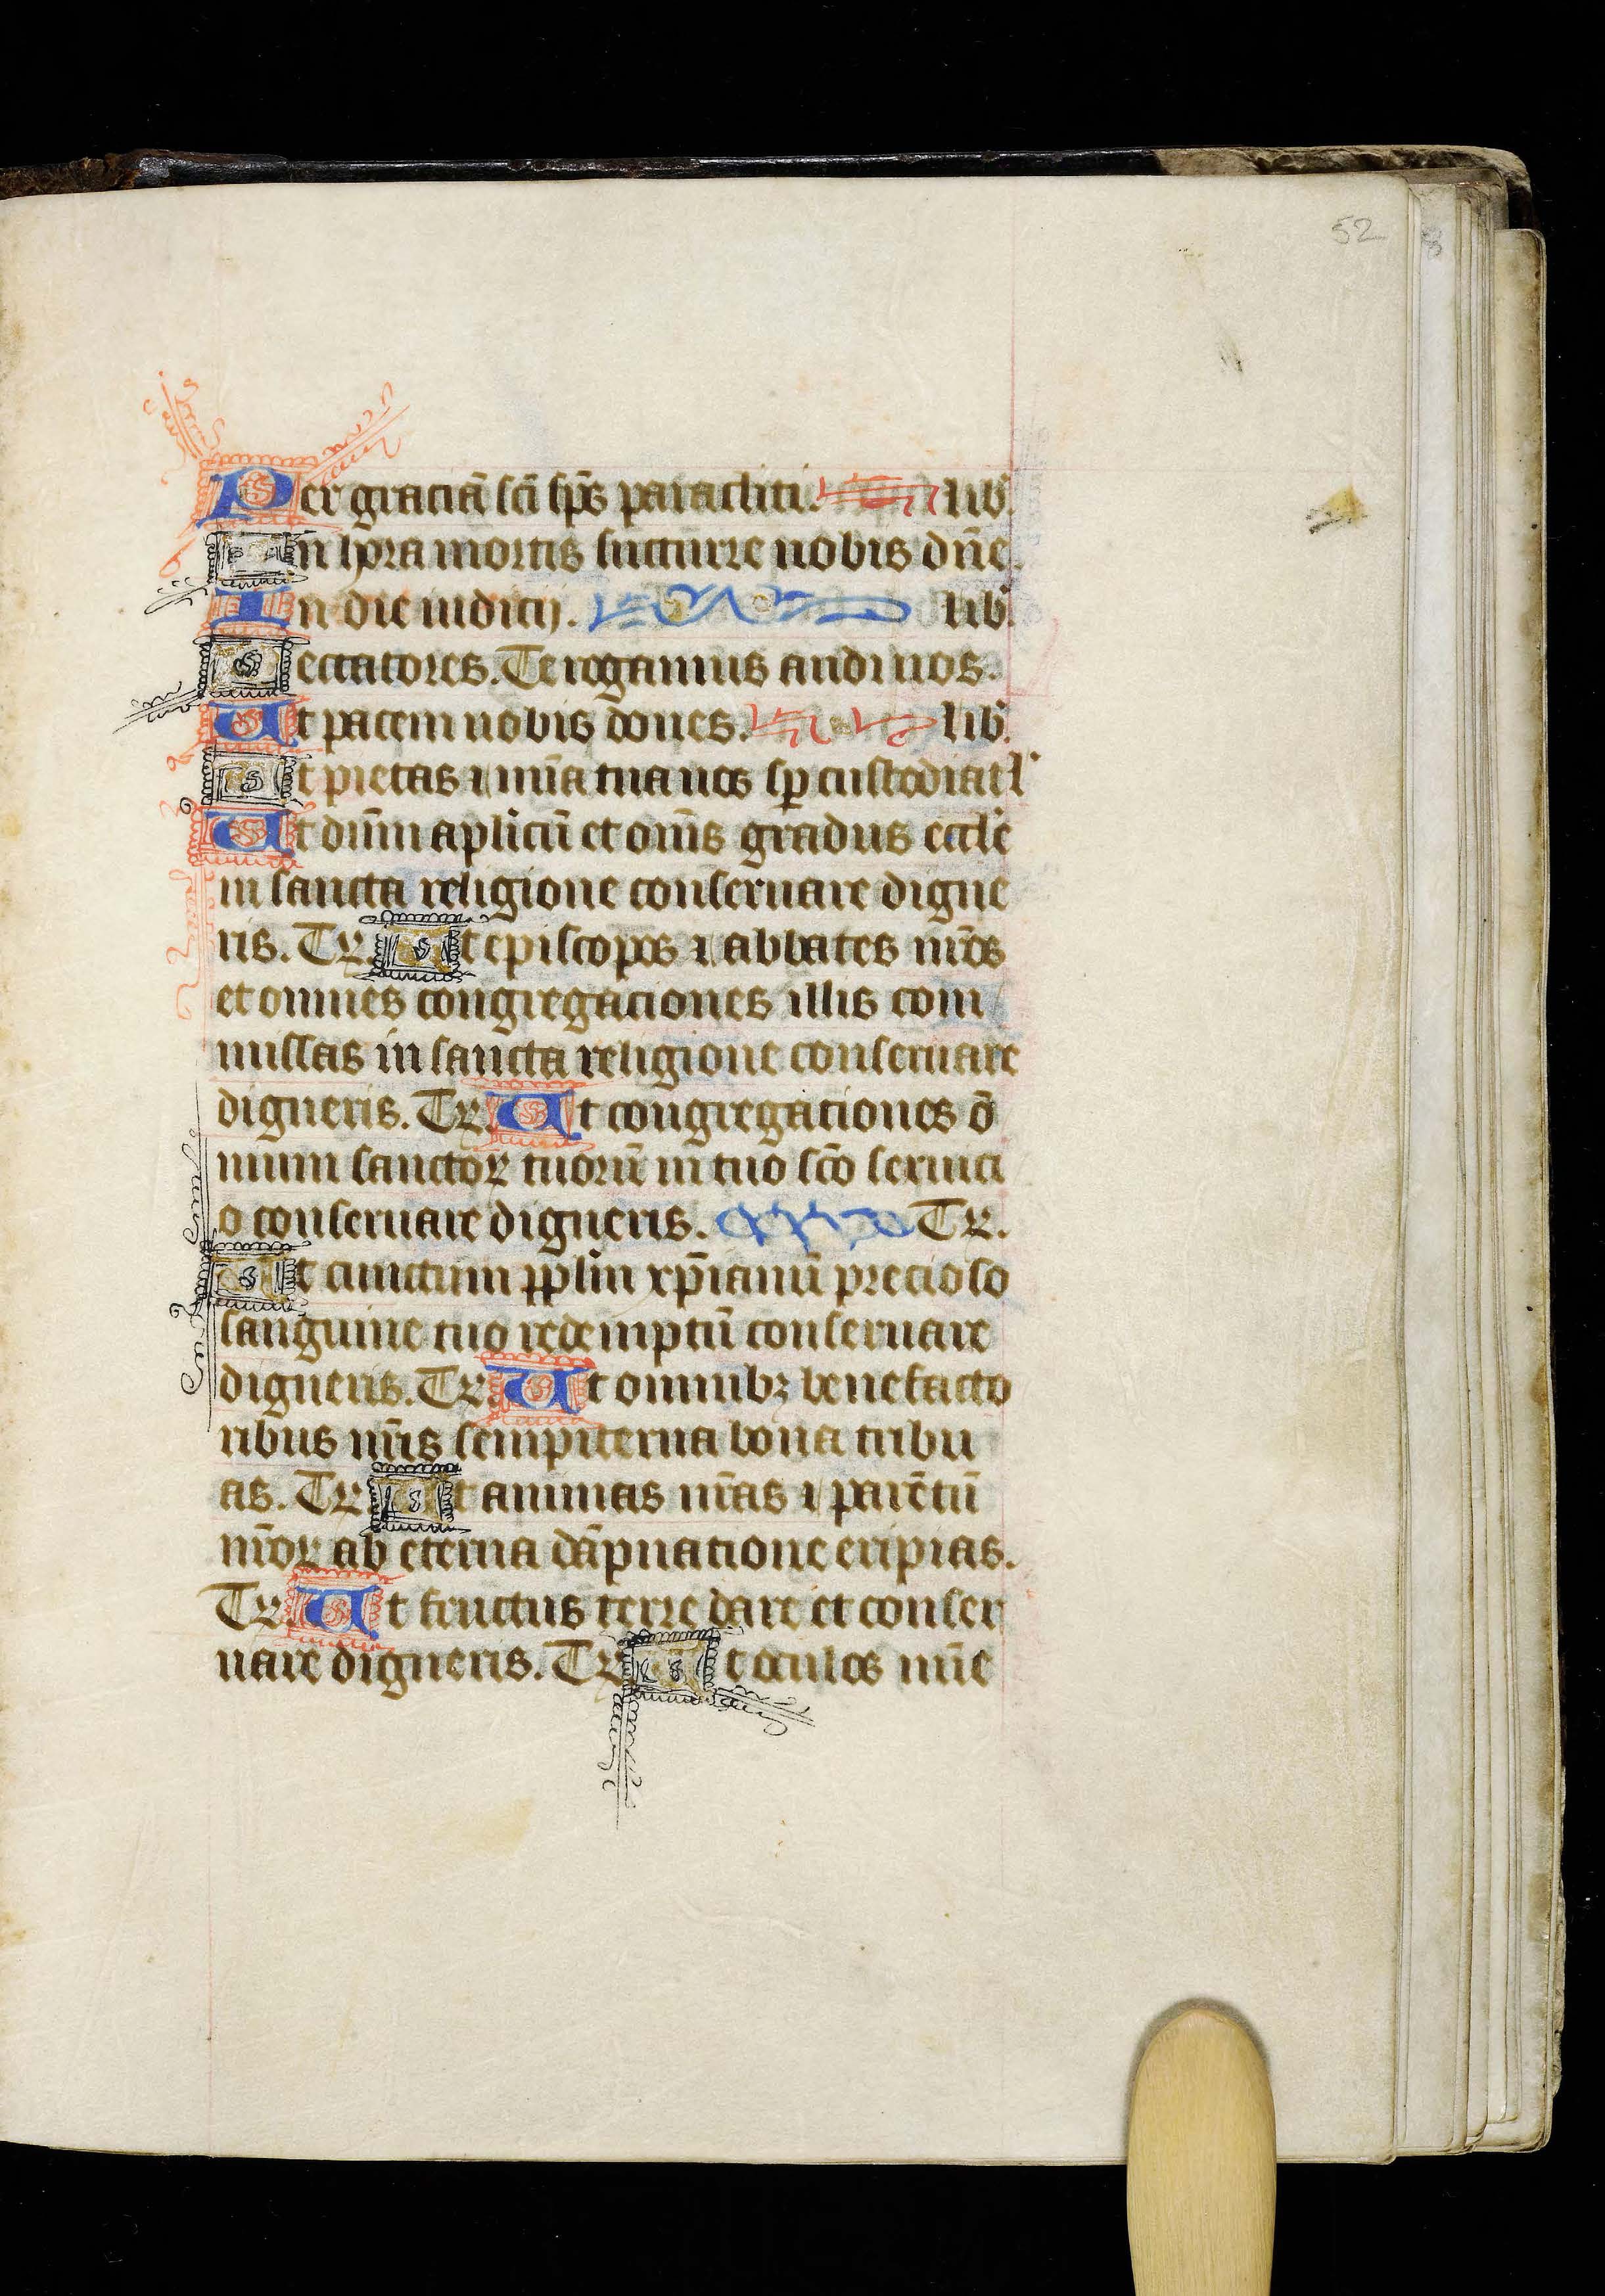 52
8
Per graciā scī sp̄s paracliti. lib'.
In hora mortis succurre nobis dn̄e.
In die iudicij. lib'.
Peccatores. Te rogamus audi nos.
Ut pacem nobis dones. lib'.
Ut pietas ⁊ mīa tua nos sꝑ custodiat l'
Ut dn̄m aplicū et om̄s gradus eccle
in sancta religione conseruare digne
ris. Tꝛ. Ut episcopos ⁊ abbates nr̄os
et omnes congregaciones illis com
missas in sancta religione conseruare
digneris. Tꝛ. Ut congregationes ō
nium sanctoꝝ tuorū in tuo sc̄o seruici
o conseruare digneris. Tꝛ.
Ut cunctum pplm xp̄ianū precioso
sanguine tuo redemptū conseruare
digneris. Tꝛ. Ut omnibꝫ benefacto
ribus nr̄is sempiterna bona tribu
as. Tꝛ. Ut animas nr̄as ⁊ parētū
nr̄oꝝ ab eterna dāpnatione eripias.
Tꝛ. Ut fructus terre dare et conser
uare digneris. Tꝛ. Ut oculos mīe